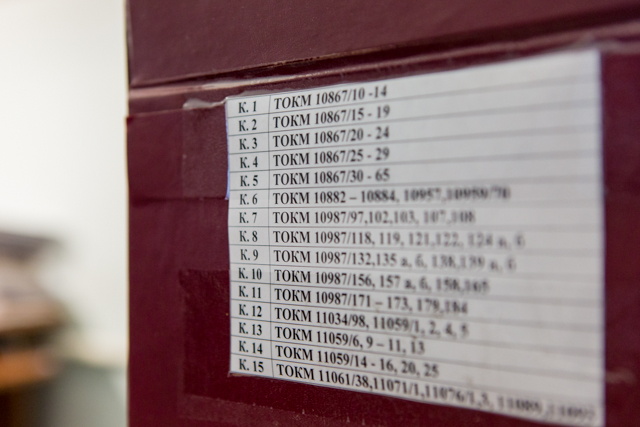 К. 1 ТОКМ 10867/10 -14
К. 2 ТОКМ 10867/15 - 19
К. 3 ТОКМ 10867/20 - 24
К. 4 ТОКМ 10867/25 - 29
К. 5 ТОКМ 10867/30 - 65
К. 6 ТОКМ 10882 – 10884, 10957,10959/70
К. 7 ТОКМ 10987/97,102,103, 107,108
К. 8 ТОКМ 10987/118, 119, 121,122, 124 а, б
К. 9 ТОКМ 10987/132,135 а, б, 138,139 а, б
К. 10 ТОКМ 10987/156, 157 а, б, 158,165
К. 11 ТОКМ 10987/171 – 173, 179,184
К. 12 ТОКМ 11034/98, 11059/1, 2, 4, 5
К. 13 ТОКМ 11059/6, 9 – 11, 13
К. 14 ТОКМ 11059/14 - 16, 20, 25
К. 15 ТОКМ 11061/38,11071/1,11076/1,3,